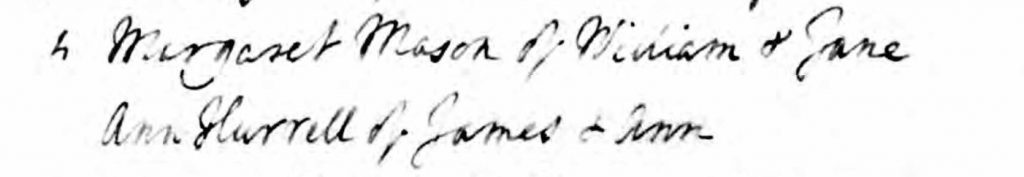 4 Margaret Mason D. of William & Jane
Ann Hurrell D. of James & Ann